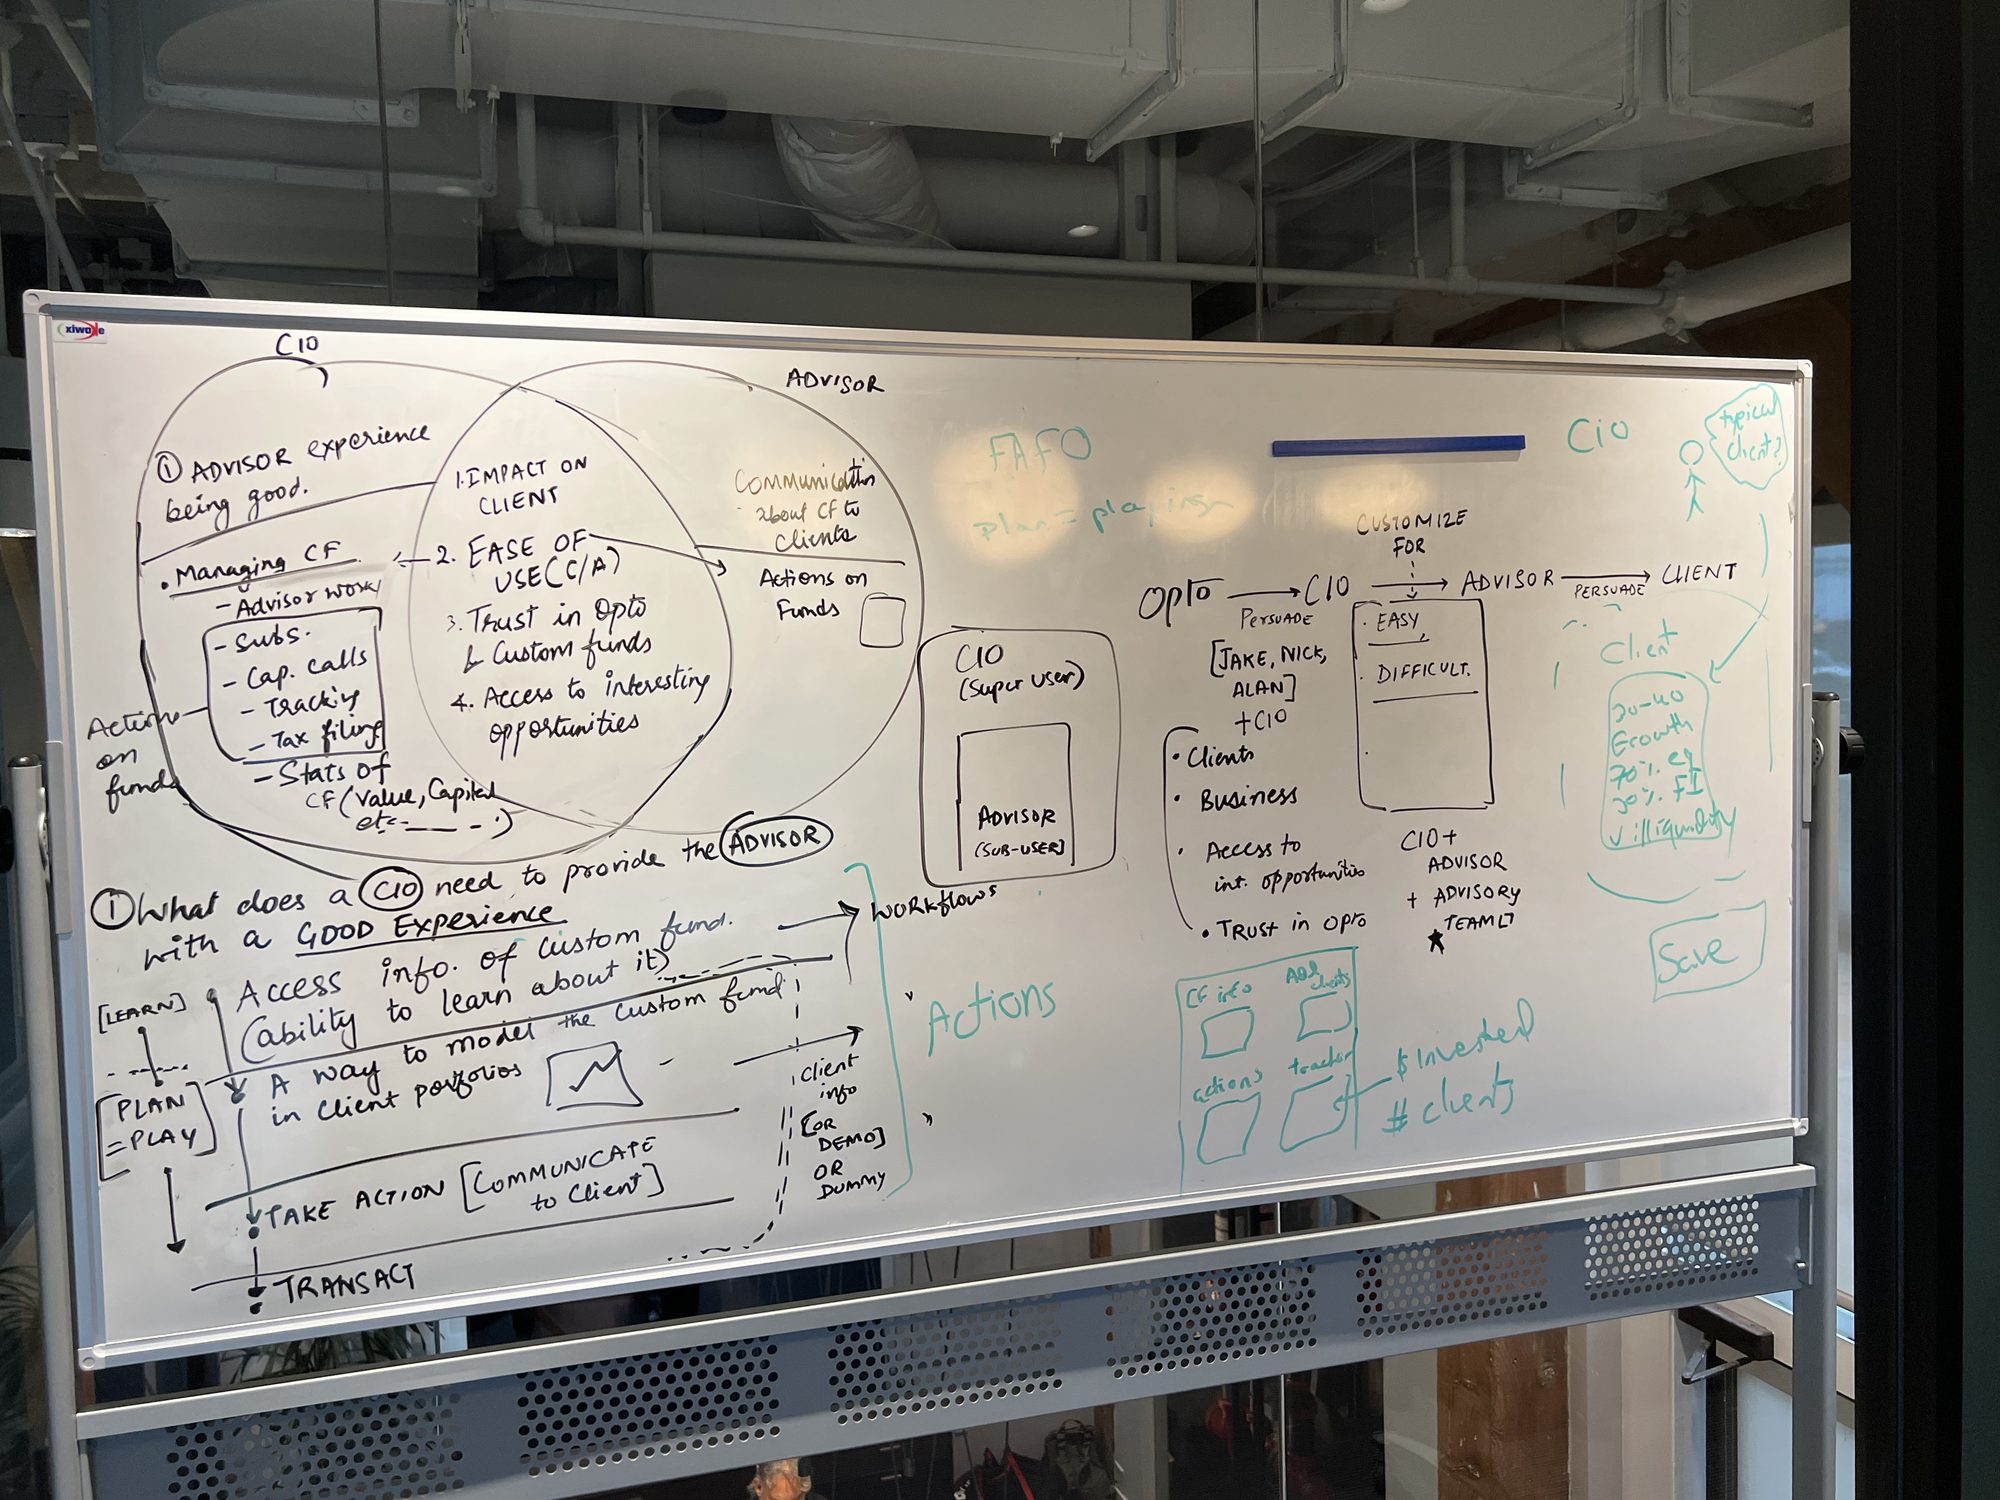 xiwode
CIO
ADVISOR
① ADVISOR experience
being good.
• Managing CF
- Advisor work
- Subs.
- Cap. calls
- Tracking
- Tax filing
- Stats of
CF (Value, Capital
etc
Actions
on
funds
1. IMPACT ON
CLIENT
2. EASE OF
USE (C/A)
3. Trust in Opto
& Custom funds
4. Access to interesting
opportunities
Communication
about CF to
Clients
Actions on
Funds
① What does a CIO need to provide the ADVISOR
with a GOOD Experience
[LEARN]
Access info. of custom fund.
(ability to learn about it)
[PLAN
= PLAY]
A way to model the custom fund
in client portfolios
TAKE ACTION [COMMUNICATE
to Client]
TRANSACT
Workflows
Client
info
[OR
DEMO]
OR
DUMMY
Actions
CIO
(Super User)
ADVISOR
(SUB-USER)
FAFO
plan = playing
CUSTOMIZE
FOR
Opto
PERSUADE
CIO
ADVISOR
PERSUADE
CLIENT
[JAKE, NICK,
ALAN]
+ CIO
• Clients
• Business
• Access to
int. opportunities
• Trust in Opto
• EASY
• DIFFICULT.
CIO +
ADVISOR
+ ADVISORY
TEAM
CF info
clients
actions
$ invested
# clients
CIO
typical
client?
Client
Growth
70% eq
30% FI
✓ illiquidity
Save